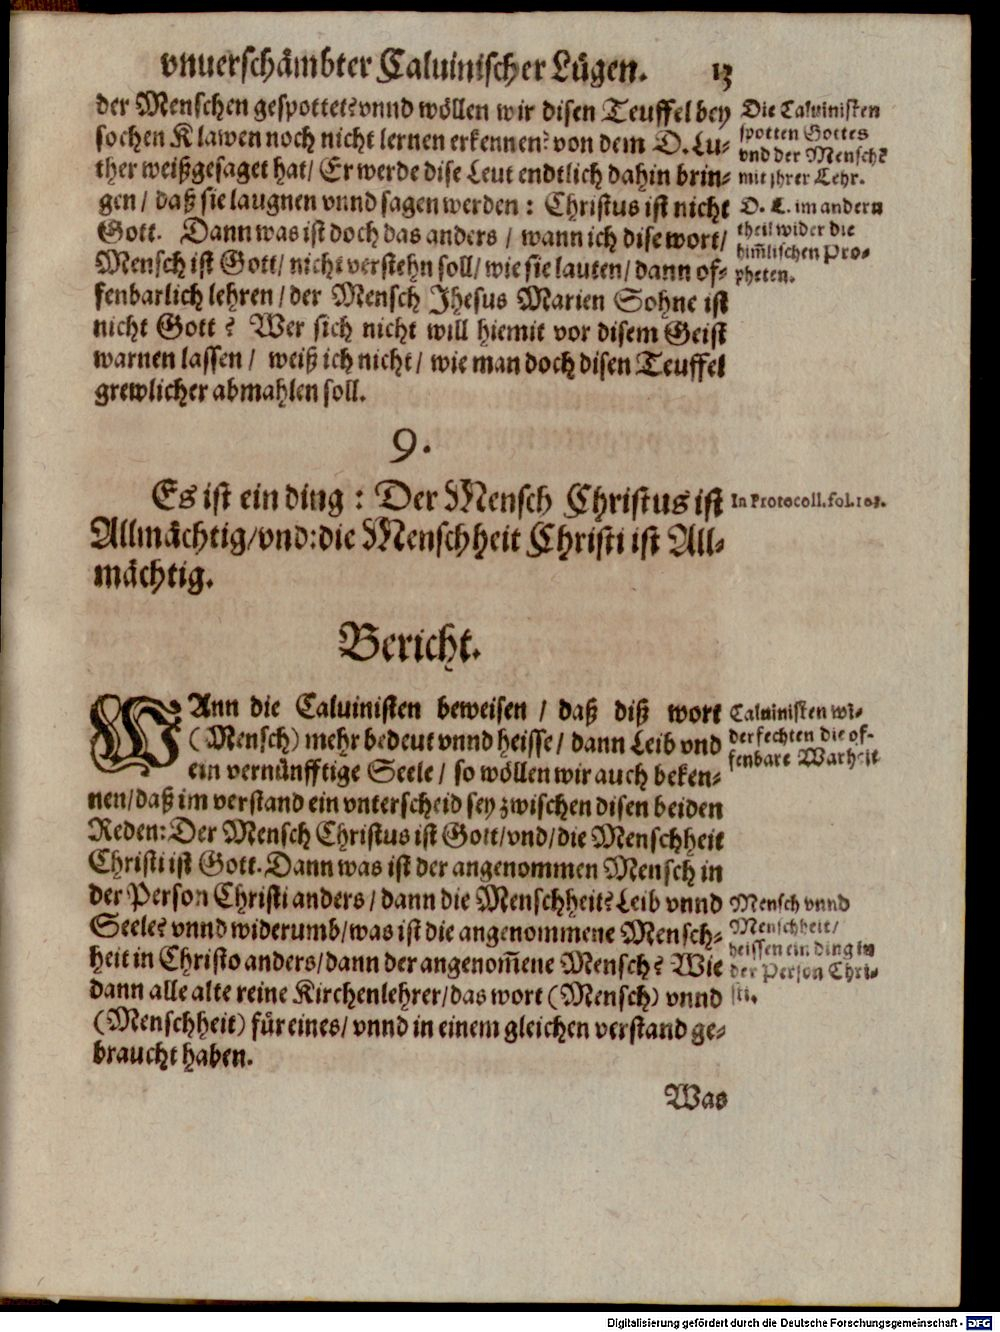 vnuerschåmbter Caluinischer Lügen. 13
der Menschen gespottet? vnnd wöllen wir disen Teuffel bey
sochen Klawen noch nicht lernen erkennen? von dem D. Lu-
ther weißgesaget hat/ Er werde dise Leut endtlich dahin brin-
gen/ daß sie laugnen vnnd sagen werden: Christus ist nicht
Gott. Dann was ist doch das anders/ wann ich dise wort/
Mensch ist Gott/ nicht verstehn soll/ wie sie lauten/ dann of-
fenbarlich lehren/ der Mensch Jhesus Marien Sohne ist
nicht Gott? Wer sich nicht will hiemit vor disem Geist
warnen lassen/ weiß ich nicht/ wie man doch disen Teuffel
grewlicher abmahlen soll.
Die Caluinisten
spotten Gottes
vnd der Menschẽ
mit jhrer Lehr.
D. L. im andern
theil wider die
him̃lischen Pro-
pheten.
9.
Es ist ein ding: Der Mensch Christus ist
Allmächtig/ vnd: die Menschheit Christi ist All-
mächtig.
In Protocoll. fol. 103.
Bericht.
WAnn die Caluinisten beweisen/ daß diß wort
(Mensch) mehr bedeut vnnd heisse/ dann Leib vnd
ein vernünfftige Seele/ so wöllen wir auch beken-
nen/ daß im verstand ein vnterscheid sey zwischen disen beiden
Reden: Der Mensch Christus ist Gott/ vnd/ die Menschheit
Christi ist Gott. Dann was ist der angenommen Mensch in
der Person Christi anders/ dann die Menschheit? Leib vnnd
Seele? vnnd widerumb/ was ist die angenommene Mensch-
heit in Christo anders/ dann der angenom̃ene Mensch? Wie
dann alle alte reine Kirchenlehrer/ das wort (Mensch) vnnd
(Menschheit) für eines/ vnnd in einem gleichen verstand ge-
braucht haben.
Caluinisten wi-
derfechten die of-
fenbare Warheit
Mensch vnnd
Menschheit/
heissen ein ding in
der Person Chri-
sti.
Was
Digitalisierung gefördert durch die Deutsche Forschungsgemeinschaft - DFG